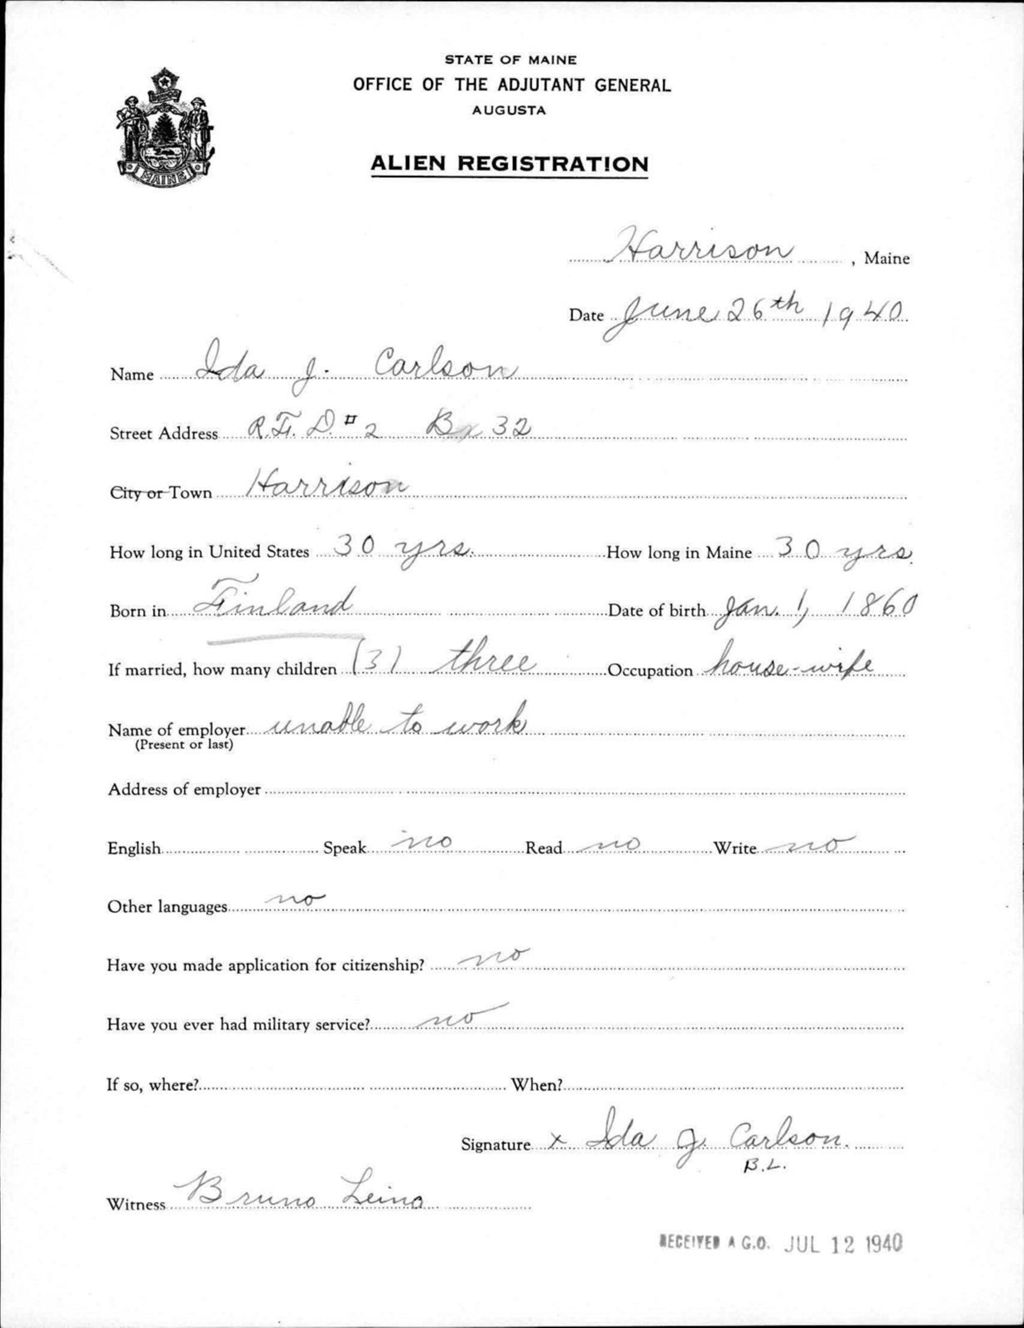 STATE OF MAINE
OFFICE OF THE ADJUTANT GENERAL
AUGUSTA
ALIEN REGISTRATION
MAINE
Harrison, Maine
Date June 26th 1940
Name Ida J. Carlson
Street Address R.F.D. #2 Bx 32
City or Town Harrison
How long in United States 30 yrs. How long in Maine 30 yrs.
Born in Finland Date of birth Jan. 1, 1860
If married, how many children (3) three Occupation house-wife
Name of employer unable to work
(Present or last)
Address of employer
English Speak no Read no Write no
Other languages no
Have you made application for citizenship? no
Have you ever had military service? no
If so, where? When?
Signature x Ida J. Carlson.
B.L.
Witness Bruno Leino
RECEIVED A.G.O. JUL 12 1940